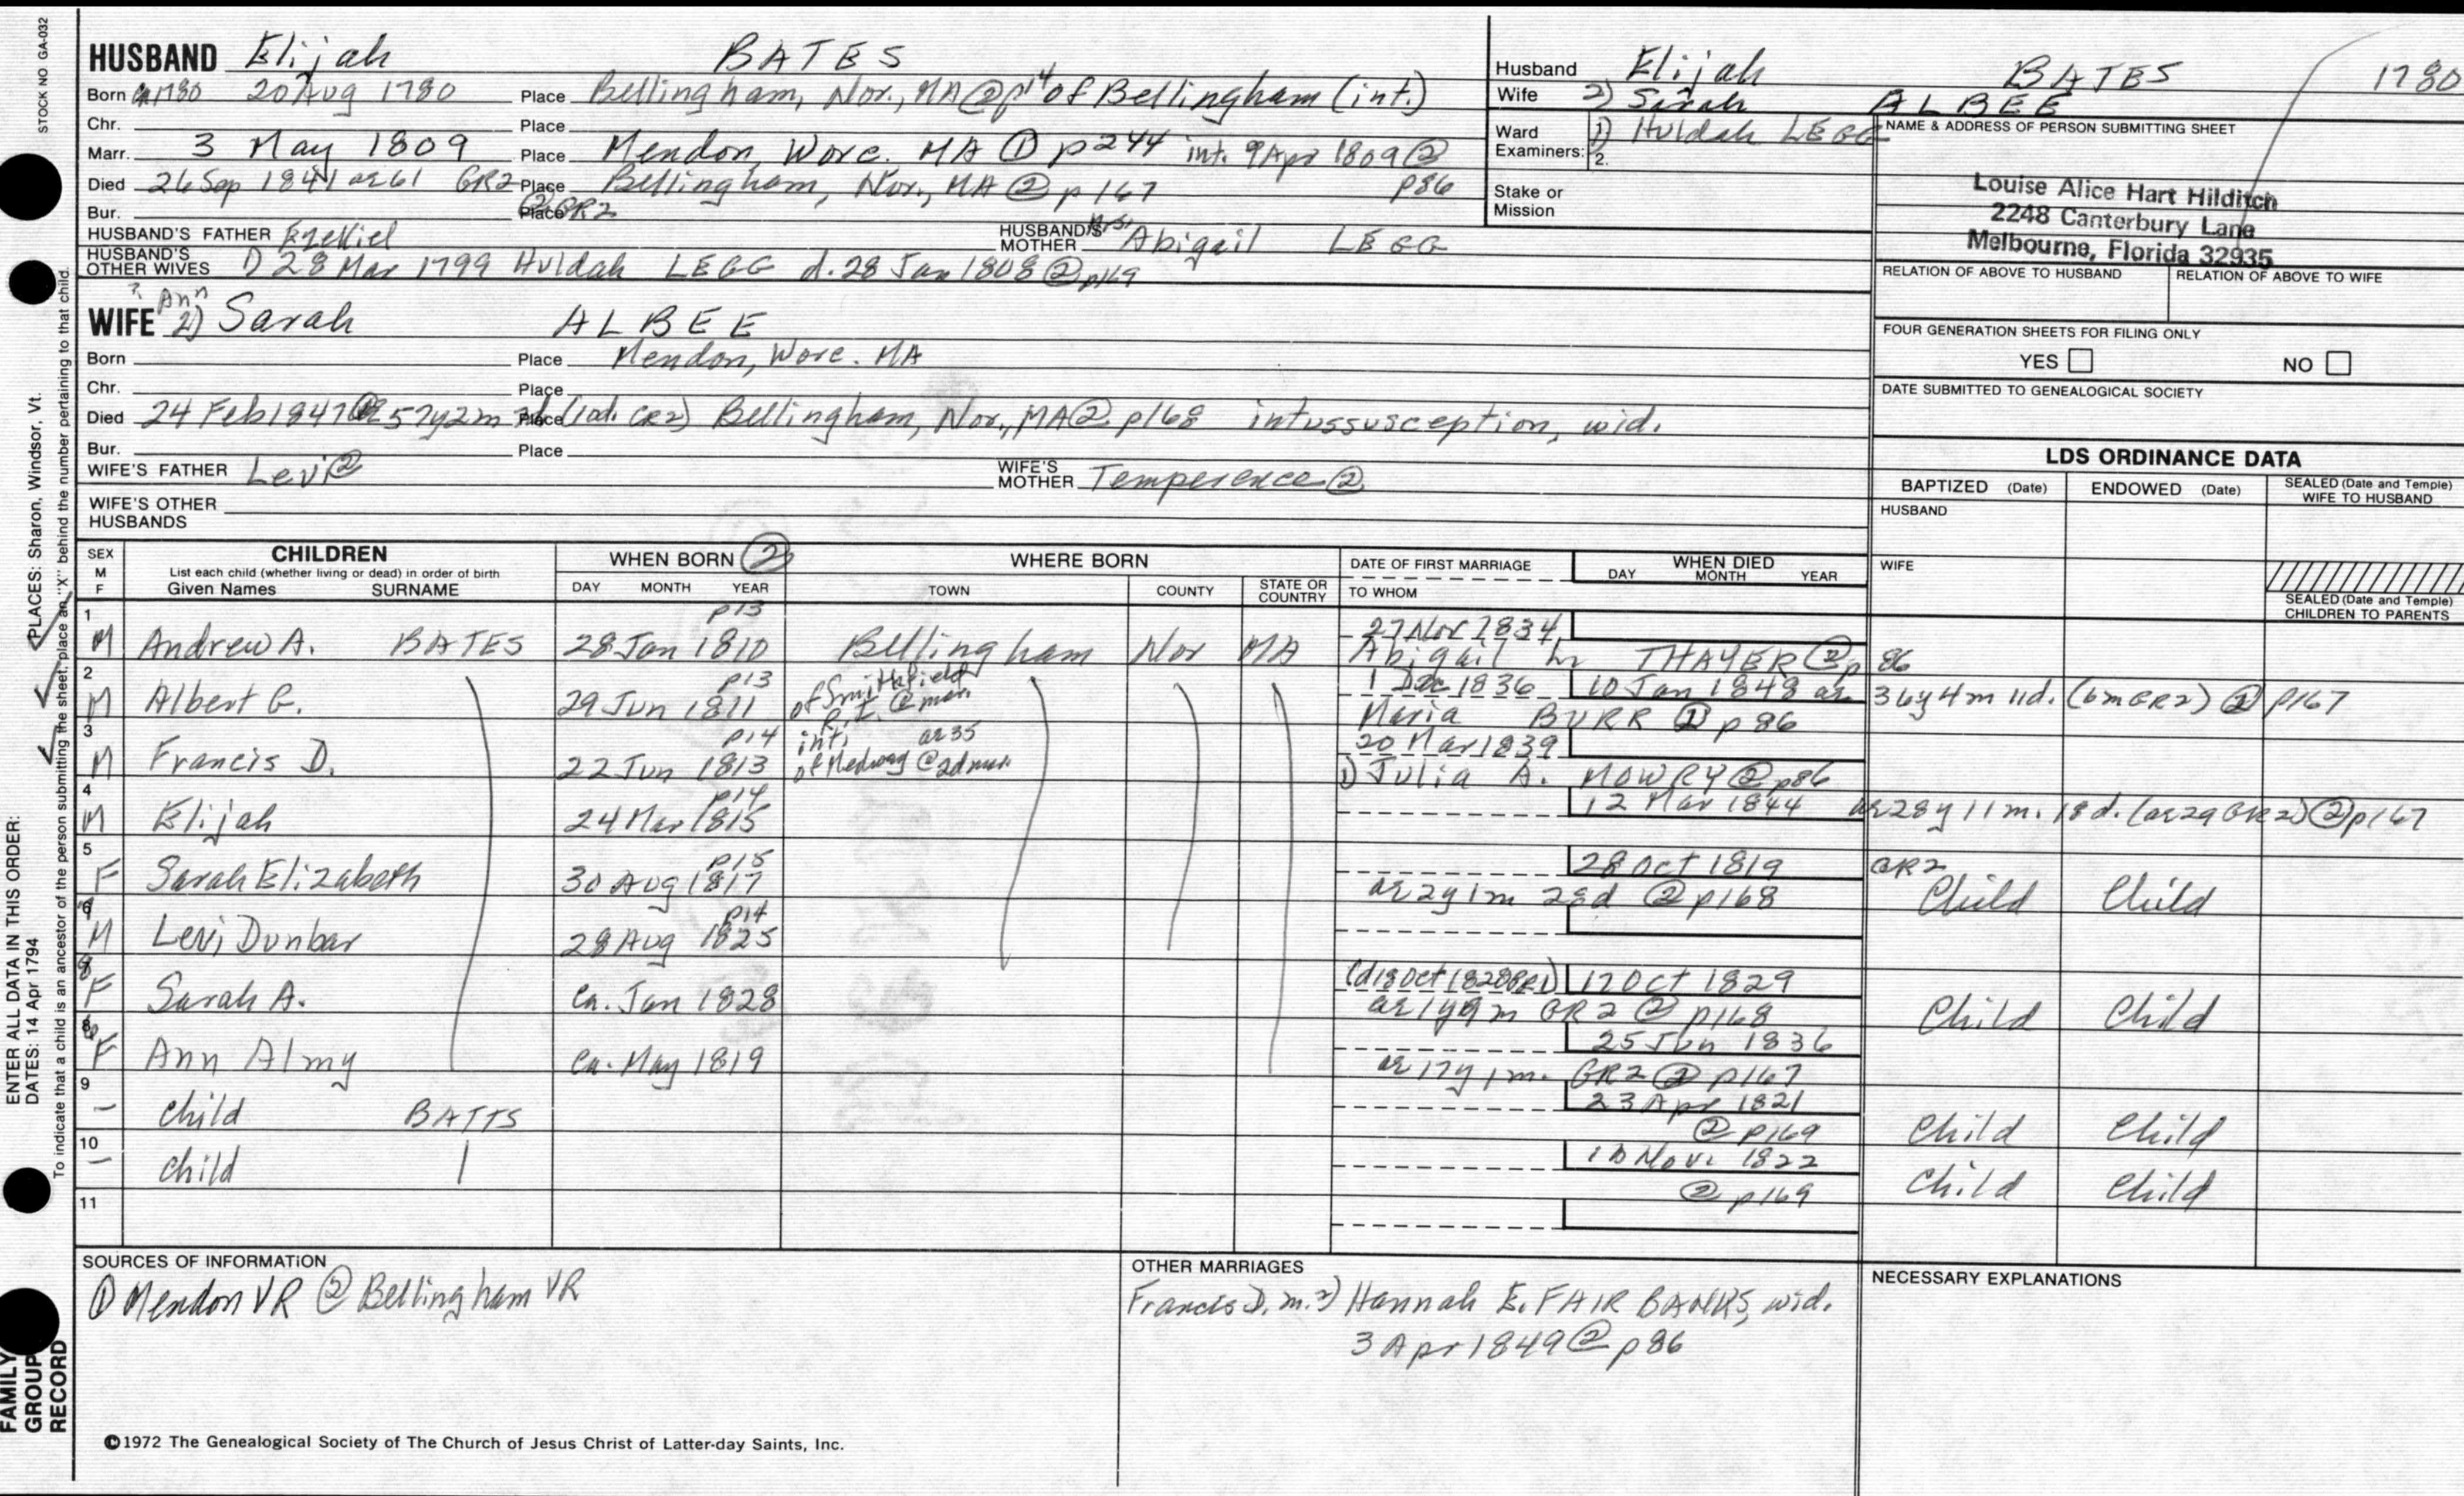 STOCK NO GA-032
HUSBAND Elijah BATES
Born ca 1780 20 Aug 1780 Place Bellingham, Nor., MA @ p14 of Bellingham (int.)
Chr. Place
Marr. 3 May 1809 Place Mendon, Worc. MA ① p244 int. 9 Apr 1809 ② p86
Died 26 Sep 1841 ae 61 GR2 Place Bellingham, Nor., MA ② p167
Bur. Place ② GR2
HUSBAND'S FATHER Ezekiel HUSBAND'S MOTHER Mrs. Abigail LEGG
HUSBAND'S OTHER WIVES 1) 28 Mar 1799 Huldah LEGG d. 28 Jan 1808 ② p169
? Ann
WIFE 2) Sarah ALBEE
Born Place Mendon, Worc. MA
Chr. Place
Died 24 Feb 1847 ② ae 57y2m 3d Place (10d. GR2) Bellingham, Nor., MA ② p168 intussusception, wid.
Bur. Place
WIFE'S FATHER Levi ② WIFE'S MOTHER Temperence ②
WIFE'S OTHER HUSBANDS
Husband Elijah BATES 1780
Wife 2) Sarah ALBEE
Ward Examiners: 1) Huldah LEGG
2.
Stake or Mission
NAME & ADDRESS OF PERSON SUBMITTING SHEET
Louise Alice Hart Hilditch
2248 Canterbury Lane
Melbourne, Florida 32935
RELATION OF ABOVE TO HUSBAND RELATION OF ABOVE TO WIFE
FOUR GENERATION SHEETS FOR FILING ONLY
YES NO
DATE SUBMITTED TO GENEALOGICAL SOCIETY
LDS ORDINANCE DATA
BAPTIZED (Date) ENDOWED (Date) SEALED (Date and Temple) WIFE TO HUSBAND
HUSBAND
WIFE
SEALED (Date and Temple) CHILDREN TO PARENTS
SEX M F CHILDREN WHEN BORN ② WHERE BORN DATE OF FIRST MARRIAGE WHEN DIED
List each child (whether living or dead) in order of birth
Given Names SURNAME DAY MONTH YEAR TOWN COUNTY STATE OR COUNTRY TO WHOM DAY MONTH YEAR
1 p13 27 Nov 1834
M Andrew A. BATES 28 Jan 1810 Bellingham Nor MA Abigail W THAYER ② p 86
2 p13 of Smithfield 1 Dec 1836 10 Jan 1848 ae 36y 4m 11d. (6m GR2) ② p167
M Albert G. 29 Jun 1811 R.I. @ marr. Maria BURR ② p 86
3 p14 int. ae 35 20 Mar 1839
M Francis D. 22 Jun 1813 of Medway @ 2d marr. 1) Julia A. MOWRY ② p86
4 p14 12 Mar 1844 ae 28y 11m. 18d. (ae 29 GR2) ② p167
M Elijah 24 Mar 1815
5 p15 28 Oct 1819 GR2
F Sarah Elizabeth 30 Aug 1817 ae 2y 1m 28d ② p168 Child Child
6 p14
M Levi Dunbar 28 Aug 1825
(d 18 Oct 1828 GR1) 17 Oct 1829
F Sarah A. ca. Jan 1828 ae 1y 9m GR2 ② p168 Child Child
8 25 Jun 1836
F Ann Almy ca. May 1819 ae 17y 1m. GR2 ② p167
9 23 Apr 1821
– child BATTS ② p169 Child Child
10 Nov. 1822
– child ② p169 Child Child
11
SOURCES OF INFORMATION
① Mendon VR ② Bellingham VR
OTHER MARRIAGES
Francis D. m. 2) Hannah E. FAIRBANKS, wid.
3 Apr 1849 ② p86
NECESSARY EXPLANATIONS
©1972 The Genealogical Society of The Church of Jesus Christ of Latter-day Saints, Inc.
ENTER ALL DATA IN THIS ORDER:
DATES: 14 Apr 1794
PLACES: Sharon, Windsor, Vt.
To indicate that a child is an ancestor of the person submitting the sheet, place an "X" behind the number pertaining to that child.
FAMILY GROUP RECORD